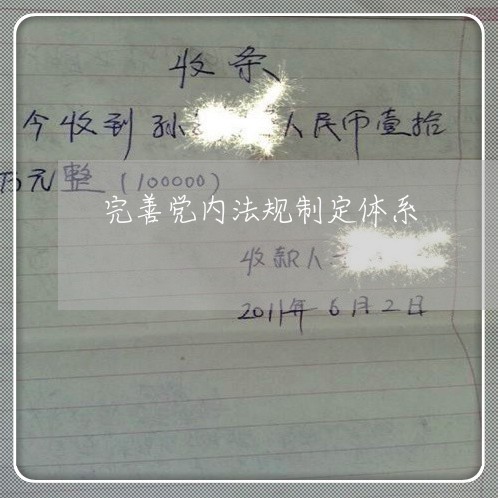 收条
今收到孙 人民币壹拾
万元整（100000）
完善党内法规制定体系
收款人
2011年6月2日